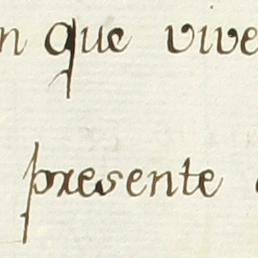 n que vive
presente